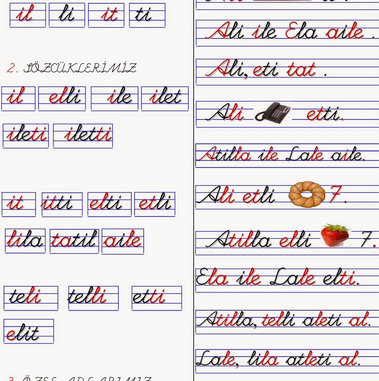 il li it ti
2. SÖZCÜKLERİMİZ
il elli ile ilet
ileti iletti
it itti elti etli
lila tatil aile
teli telli etti
elit
Ali ile Ela aile .
Ali, eti tat .
Ali etti.
Atilla ile Lale aile.
Ali etli 7.
Atilla elli 7.
Ela ile Lale elti.
Atilla, telli aleti al.
Lale, lila atleti al.